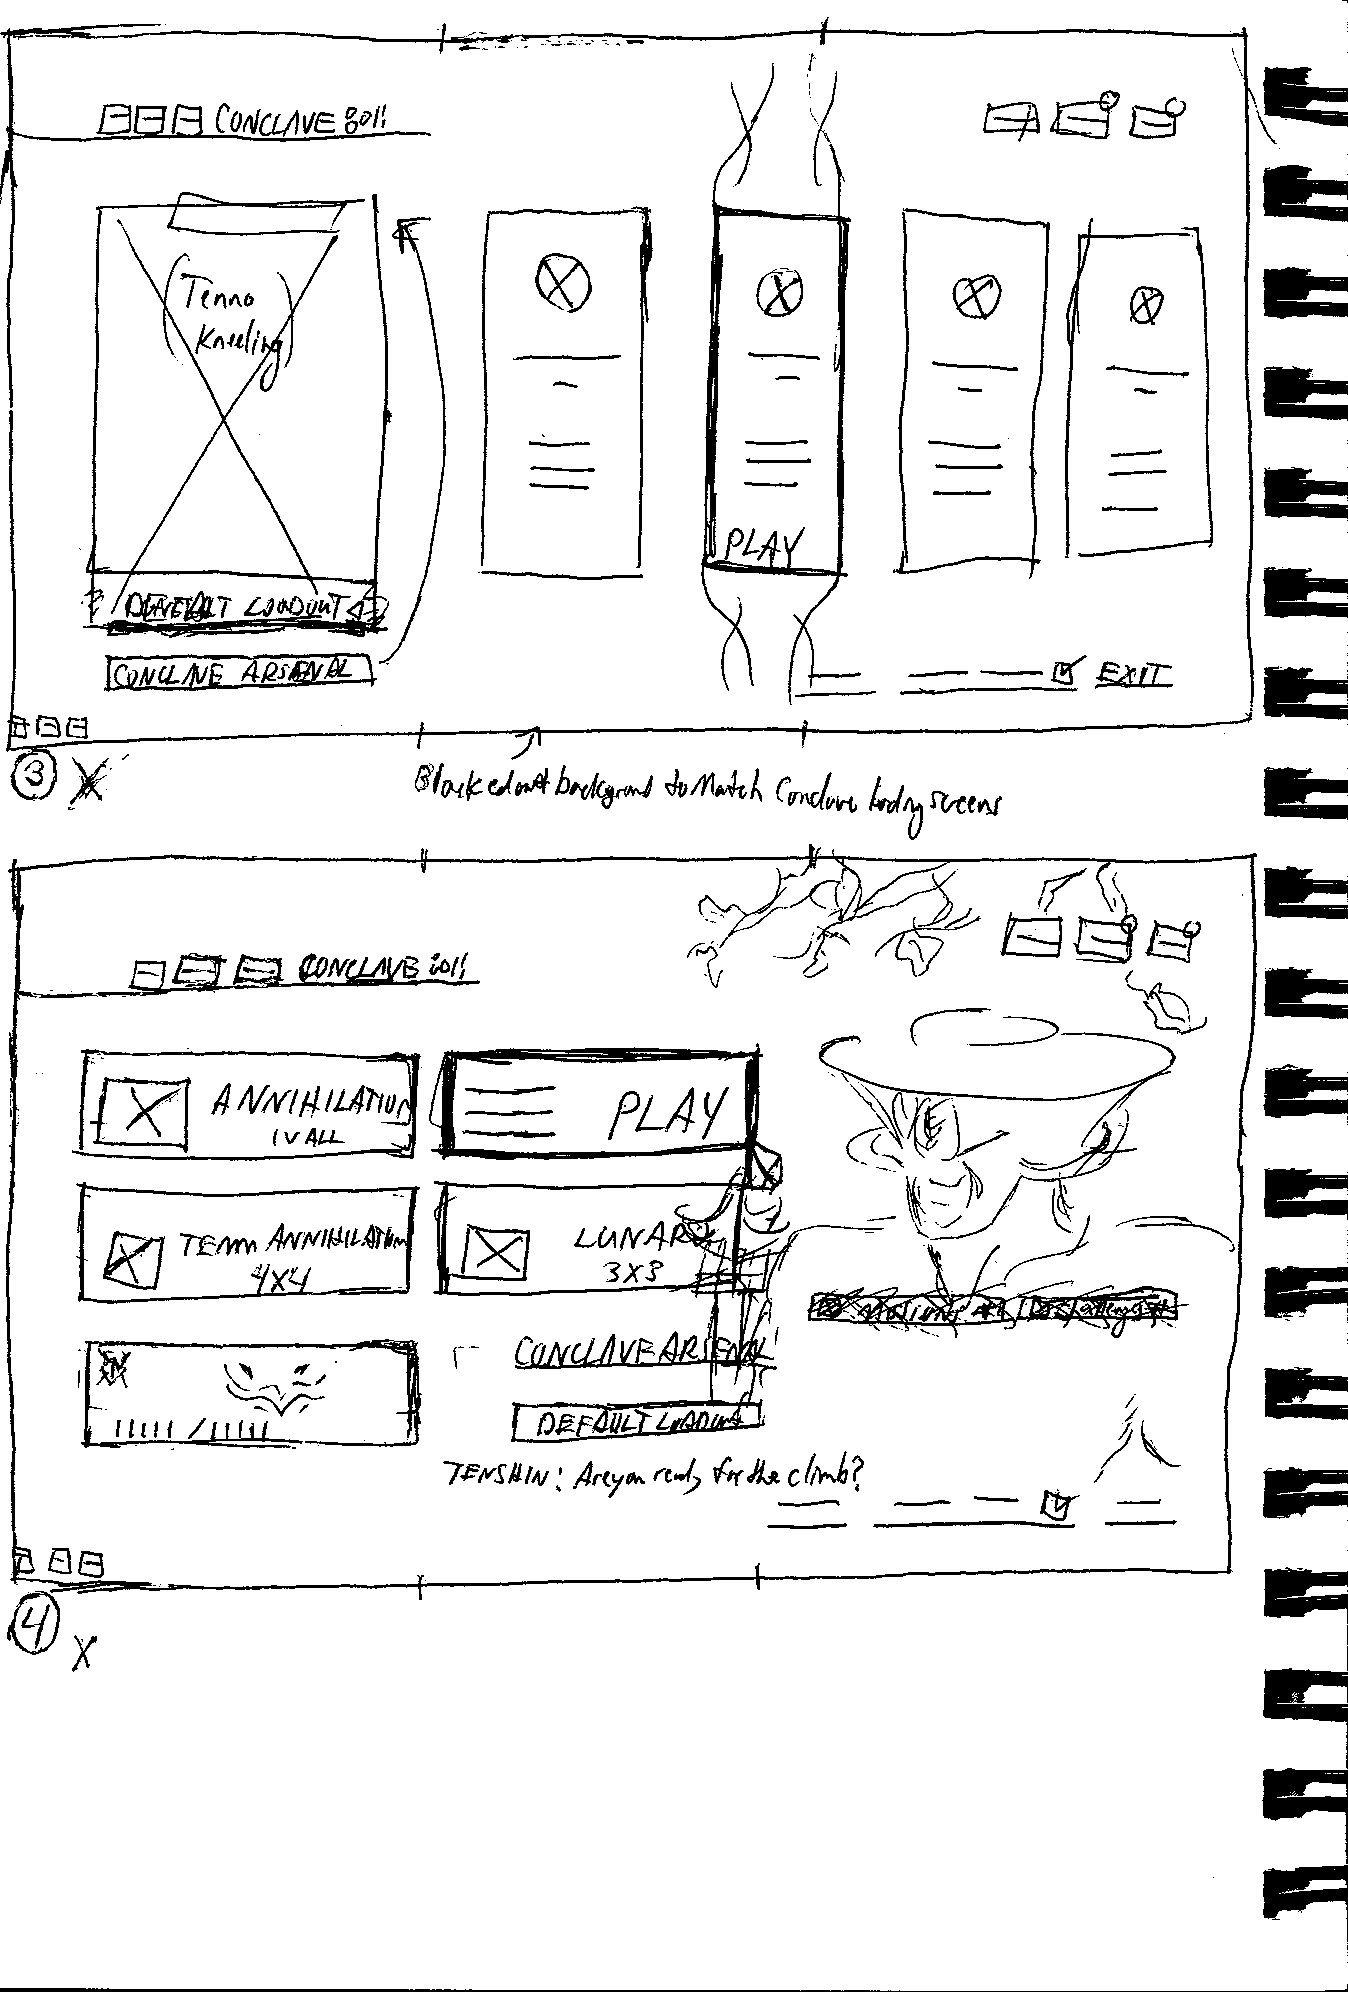 CONCLAVE
(Tenno
Kneeling)
PLAY
DEFAULT LOADOUT
CONCLAVE ARSENAL
EXIT
3 X
Blacked out background to Match Conclave loading screens
CONCLAVE
ANNIHILATION
1 V ALL
PLAY
TEAM ANNIHILATION
4X4
LUNARO
3X3
CONCLAVE ARSENAL
DEFAULT LOADOUT
TENSHIN: Are you ready for the climb?
4
X